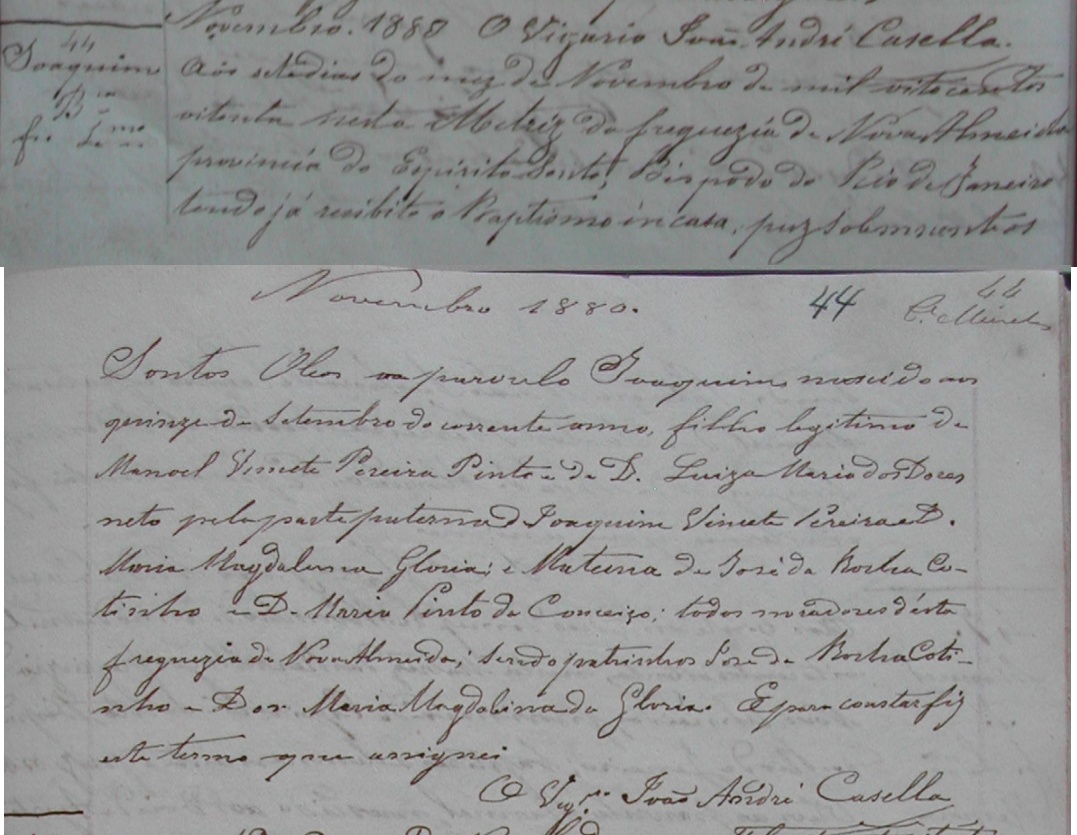 Novembro. 1880 O Vigario João André Casella.
44
Joaquim
B
f. L.mo
Aos sete dias do mez de Novembro de mil oitocentos
oitenta nesta Matriz da freguezia de Nova Almeida
provincia do Espirito Santo, Bispado do Rio de Janeiro
tendo já recibito o Baptismo in casa, puz solemnentos
Novembro 1880.
44
44
Santos Oleos ao parvulo Joaquim nascido aos
quinze de Setembro do corrente anno, filho legitimo de
Manoel Vincete Pereira Pinto e de D. Luiza Maria das Dores
neto pela parte paterna d Joaquim Vincete Pereira e D.
Maria Magdalena Gloria; e Materna de José da Rocha Co-
tinho e D. Maria Pinto da Conceizo; todos moradores d'esta
freguezia de Nova Almeida; sendo patrinhos José da Rocha Coti-
nho e Don. Maria Magdalina da Gloria. E para constar fiz
este termo que assignei
O Vig.rio João André Casella